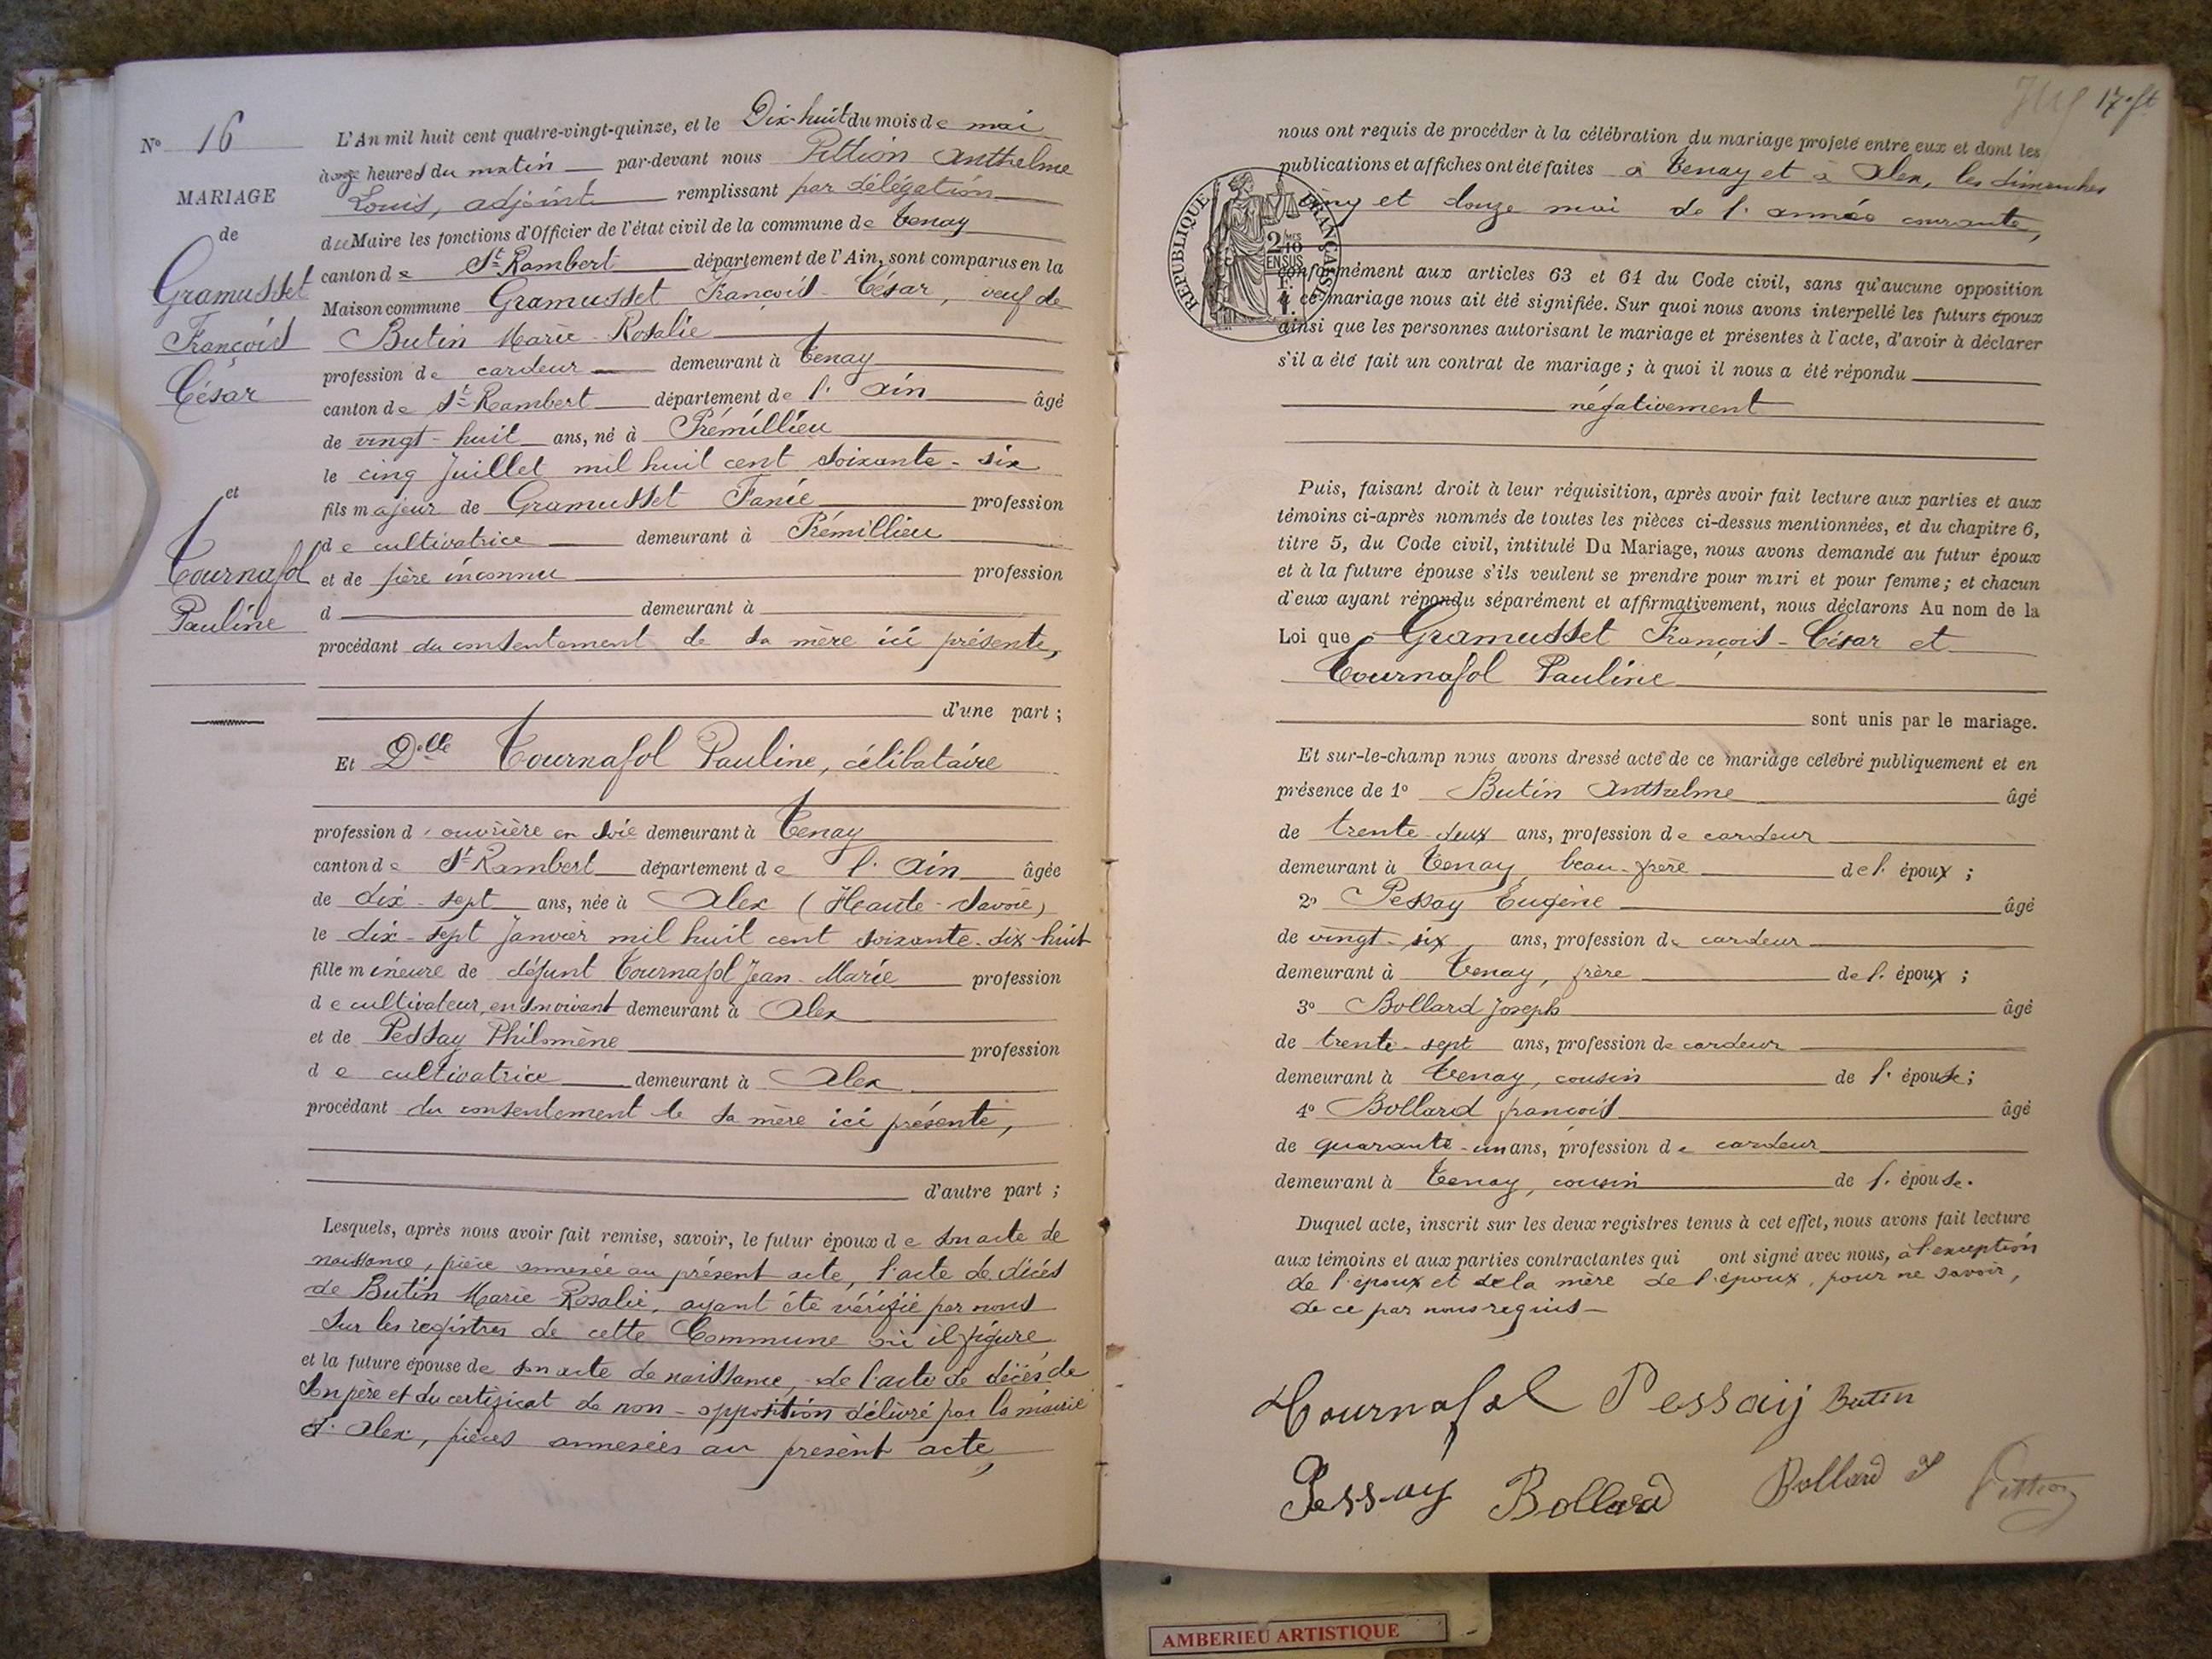 N° 16
MARIAGE
de
Gramusset
François
César
et
Tournafol
Pauline
L'An mil huit cent quatre-vingt-quinze, et le Dix-huit du mois de mai
à onze heures du matin par-devant nous Pittion Anthelme
Louis, adjoint remplissant par délégation
du Maire les fonctions d'Officier de l'état civil de la commune de Tenay
canton de St Rambert département de l'Ain, sont comparus en la
Maison commune Gramusset François-César, veuf de
Butin Marie-Rosalie
profession de cardeur demeurant à Tenay
canton de St Rambert département de l'Ain âgé
de vingt-huit ans, né à Prémillieu
le cinq Juillet mil huit cent soixante-six
fils majeur de Gramusset Fanie profession
de cultivatrice demeurant à Prémillieu
et de père inconnu profession
d demeurant à
procédant du consentement de sa mère ici présente,
d'une part ;
Et Delle Tournafol Pauline, célibataire
profession d'ouvrière en soie demeurant à Tenay
canton de St Rambert département de l'Ain âgée
de dix-sept ans, née à Alex (Haute-Savoie)
le dix-sept Janvier mil huit cent soixante-dix-huit
fille mineure de défunt Tournafol Jean-Marie profession
de cultivateur, en son vivant demeurant à Alex
et de Pessay Philomène profession
de cultivatrice demeurant à Alex
procédant du consentement de sa mère ici présente,
d'autre part ;
Lesquels, après nous avoir fait remise, savoir, le futur époux de son acte de
naissance, pièce annexée au présent acte, l'acte de décès
de Butin Marie-Rosalie, ayant été vérifié par nous
sur les registres de cette Commune où il figure
et la future épouse de son acte de naissance, de l'acte de décès de
son père et du certificat de non-opposition délivré par la mairie
d'Alex, pièces annexées au présent acte,
17 ft
nous ont requis de procéder à la célébration du mariage projeté entre eux et dont les
publications et affiches ont été faites à Tenay et à Alex, les dimanches
cinq et douze mai de l'année courante,
RÉPUBLIQUE FRANÇAISE
2/10 MES EN SUS
conformément aux articles 63 et 64 du Code civil, sans qu'aucune opposition
à ce mariage nous ait été signifiée. Sur quoi nous avons interpellé les futurs époux
ainsi que les personnes autorisant le mariage et présentes à l'acte, d'avoir à déclarer
s'il a été fait un contrat de mariage ; à quoi il nous a été répondu
négativement
Puis, faisant droit à leur réquisition, après avoir fait lecture aux parties et aux
témoins ci-après nommés de toutes les pièces ci-dessus mentionnées, et du chapitre 6,
titre 5, du Code civil, intitulé Du Mariage, nous avons demandé au futur époux
et à la future épouse s'ils veulent se prendre pour mari et pour femme ; et chacun
d'eux ayant répondu séparément et affirmativement, nous déclarons Au nom de la
Loi que Gramusset François-César et
Tournafol Pauline
sont unis par le mariage.
Et sur-le-champ nous avons dressé acte de ce mariage célébré publiquement et en
présence de 1° Butin Anthelme âgé
de trente-deux ans, profession de cardeur
demeurant à Tenay, beau-frère de l'époux ;
2° Pessay Eugène âgé
de vingt-six ans, profession de cardeur
demeurant à Tenay, frère de l'époux ;
3° Bollard Joseph âgé
de trente-sept ans, profession de cardeur
demeurant à Tenay, cousin de l'épouse ;
4° Bollard françois âgé
de quarante-un ans, profession de cardeur
demeurant à Tenay, cousin de l'épouse.
Duquel acte, inscrit sur les deux registres tenus à cet effet, nous avons fait lecture
aux témoins et aux parties contractantes qui ont signé avec nous, à l'exception
de l'époux et de la mère de l'époux, pour ne savoir,
de ce par nous requis
Tournafol Pessaij Butin
Pessay Bollard Bollard J Pittion
AMBERIEU ARTISTIQUE